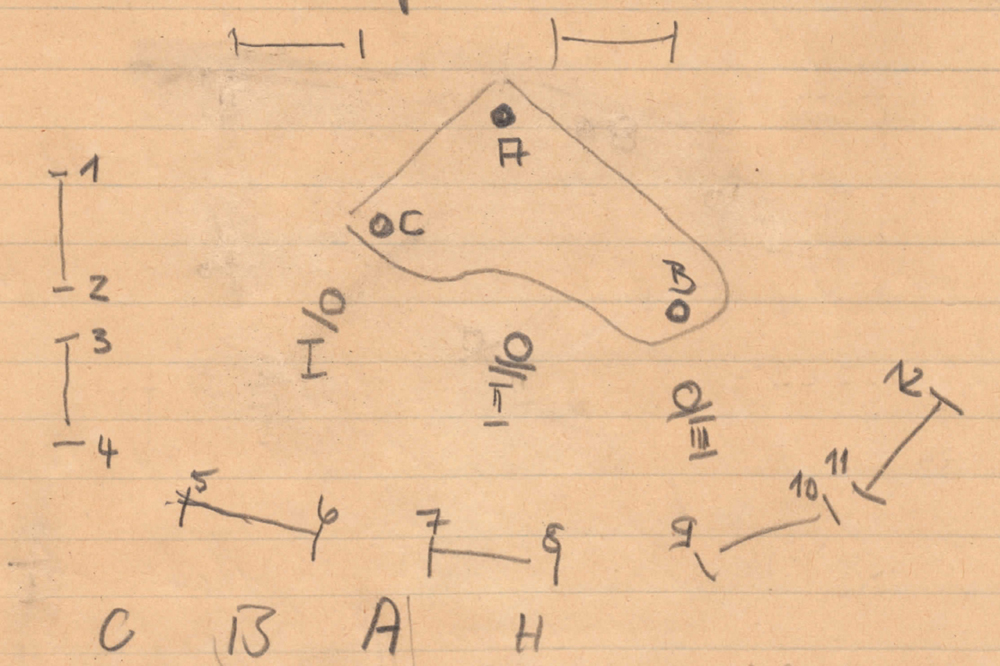 A
1
C
B
2
I
3
II
12
III
4
11
5
10
6
7
8
9
C B A H